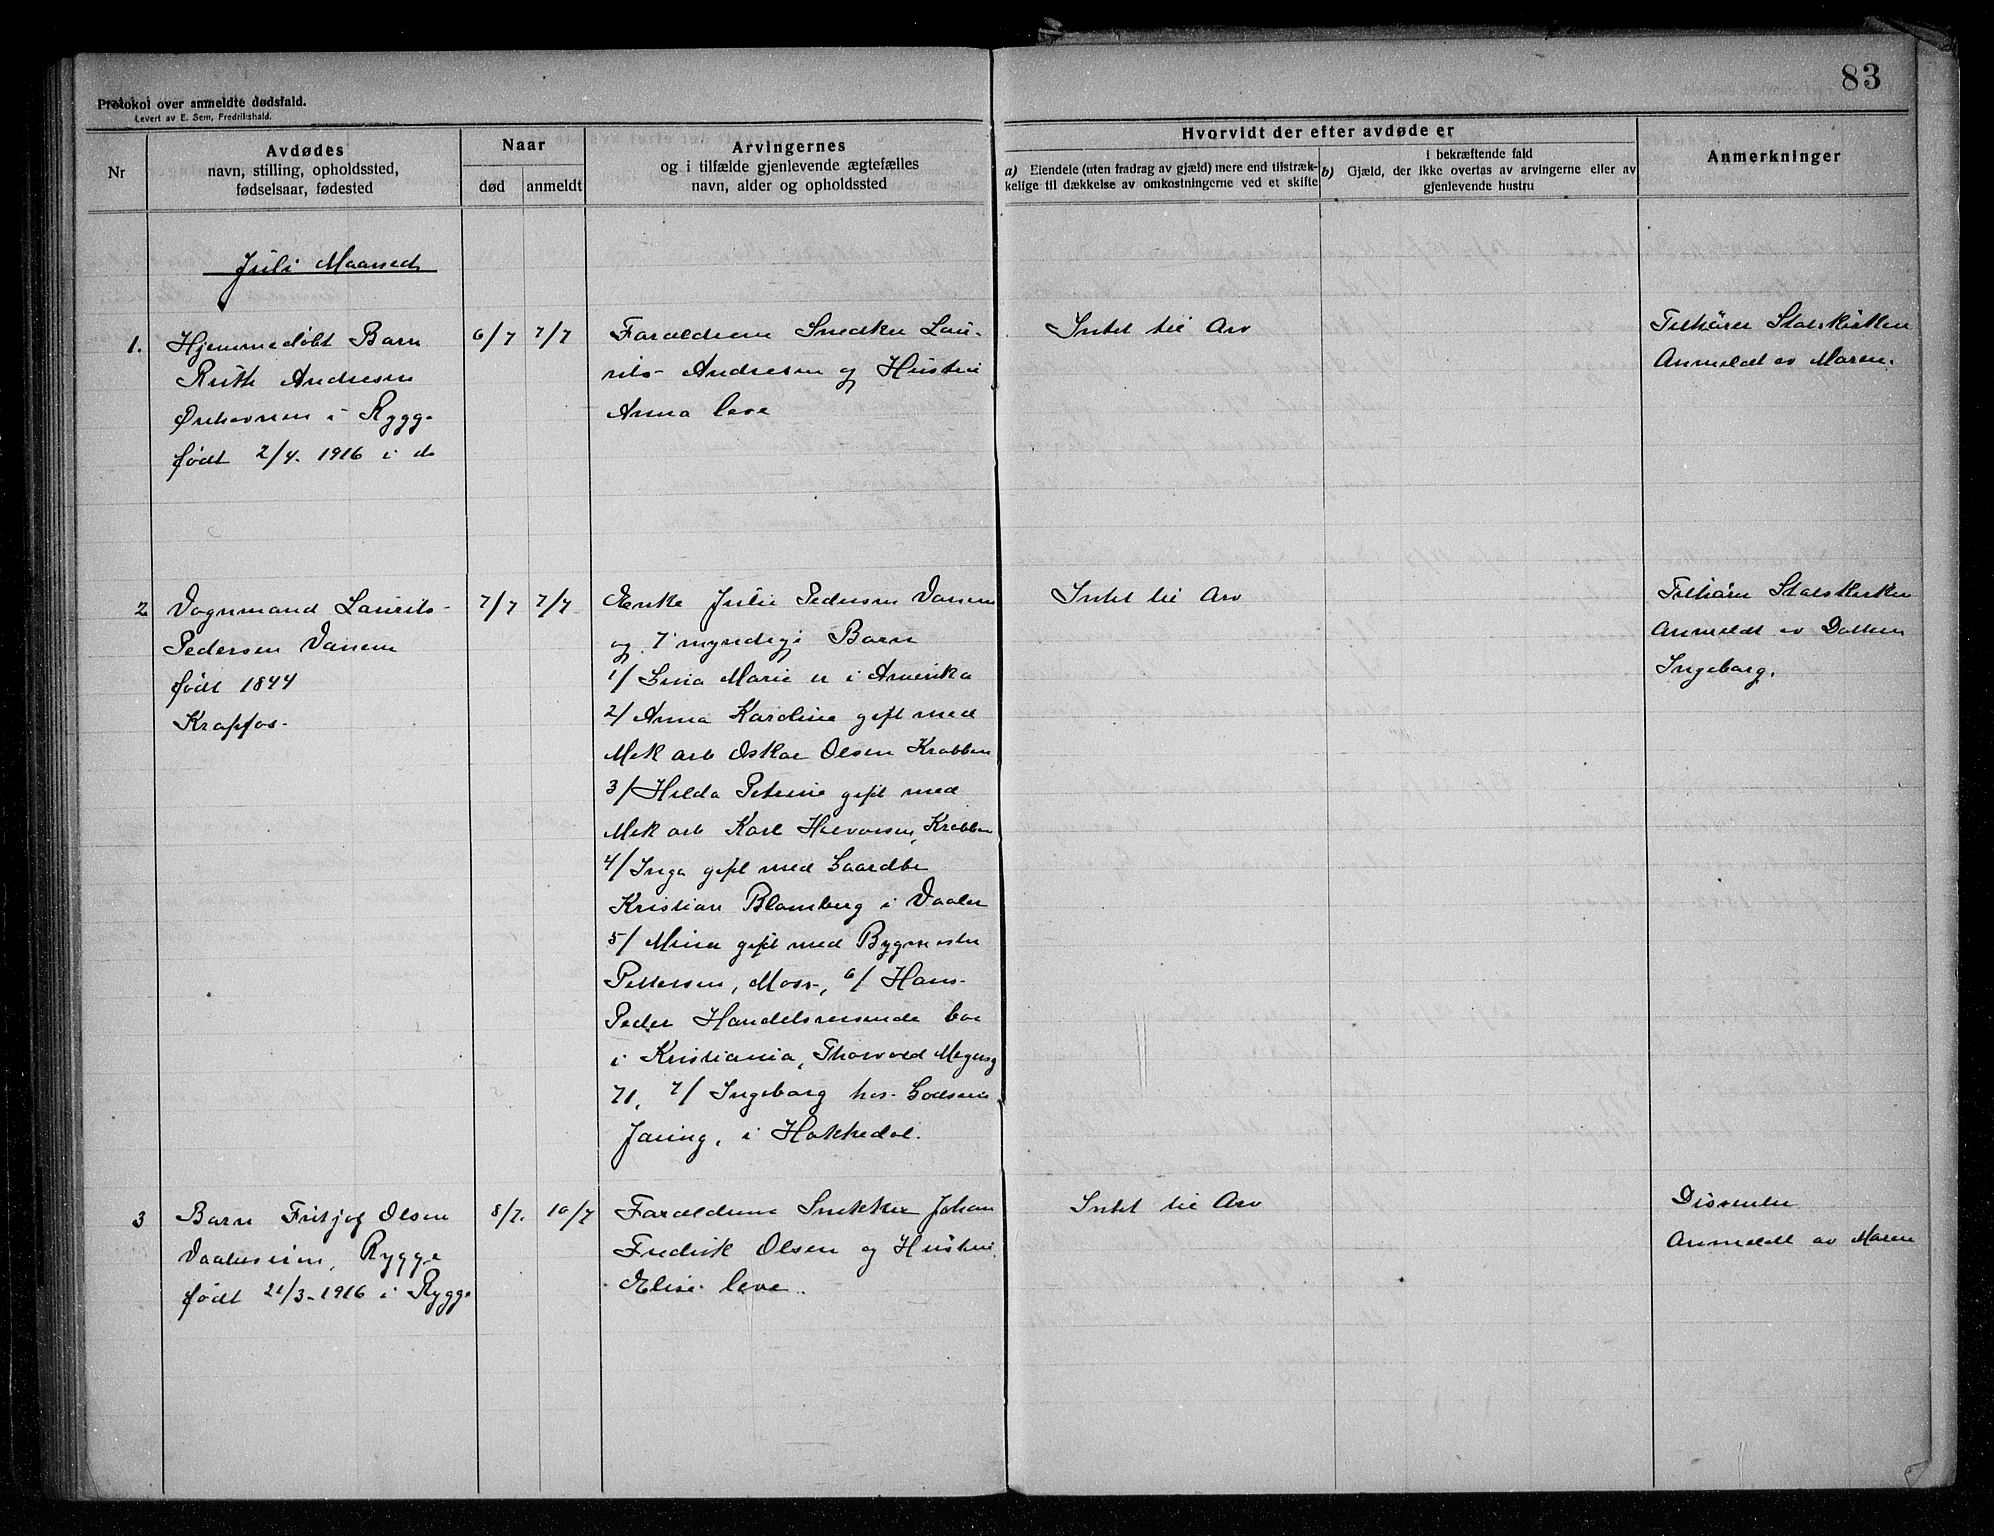 83
Protokol over anmeldte dødsfald.
Levert av E. Sem, Fredrikshald.
Nr
Avdødes
navn, stilling, opholdssted,
fødselsaar, fødested
Naar
død
anmeldt
Arvingernes
og i tilfælde gjenlevende ægtefælles
navn, alder og opholdssted
Hvorvidt der efter avdøde er
a) Eiendele (uten fradrag av gjæld) mere end tilstræk-
kelige til dækkelse av omkostningerne ved et skifte
i bekræftende fald
b) Gjæld, der ikke overtas av arvingerne eller av
gjenlevende hustru
Anmerkninger
Juli Maaned
1.
Hjemmedøbt Barn
Ruth Andresen
Ørehavnen i Rygge
født 2/4. 1916 i do
6/7
7/7
Foræeldrene Snedker Lau-
rits Andresen og Hustru
Anna leve
Intet til Arv
Tilhører Statskirken
Anmeldt av Moren.
2
Vognmand Laurits
Pedersen Vanem
født 1844
Krapfos
7/7
7/7
Enke Julie Pedersen Vanem
og 7 myndige Barn
1/ Lina Marie er i Amerika
2/ Anna Karoline gift med
Mek arb Oskar Olsen Krabben
3/ Hilda Petrine gift med
Mek arb Karl Halvorsen, Krabben
4/ Inga gift med Gaardbr
Kristian Blomberg i Vaaler
5/ Mina gift med Bygmester
Pettersen, Moss, 6/ Hans
Peder Handelsreisende bor
i Kristiania, Thorvald Meyersg
71, 7/ Ingeborg hos Godseier
Jaring, i Hakkedal.
Intet til Arv
Tilhører Statskirken
Anmeldt av Datteren
Ingeborg.
3
Barn Fritjof Olsen
Rygge
født 21/3-1916 i Rygge
8/7.
10/7
Foræeldrene Snekker Johan
Fredrik Olsen og Hustru
Elise leve.
Intet til Arv
Dissenter
Anmeldt av Moren